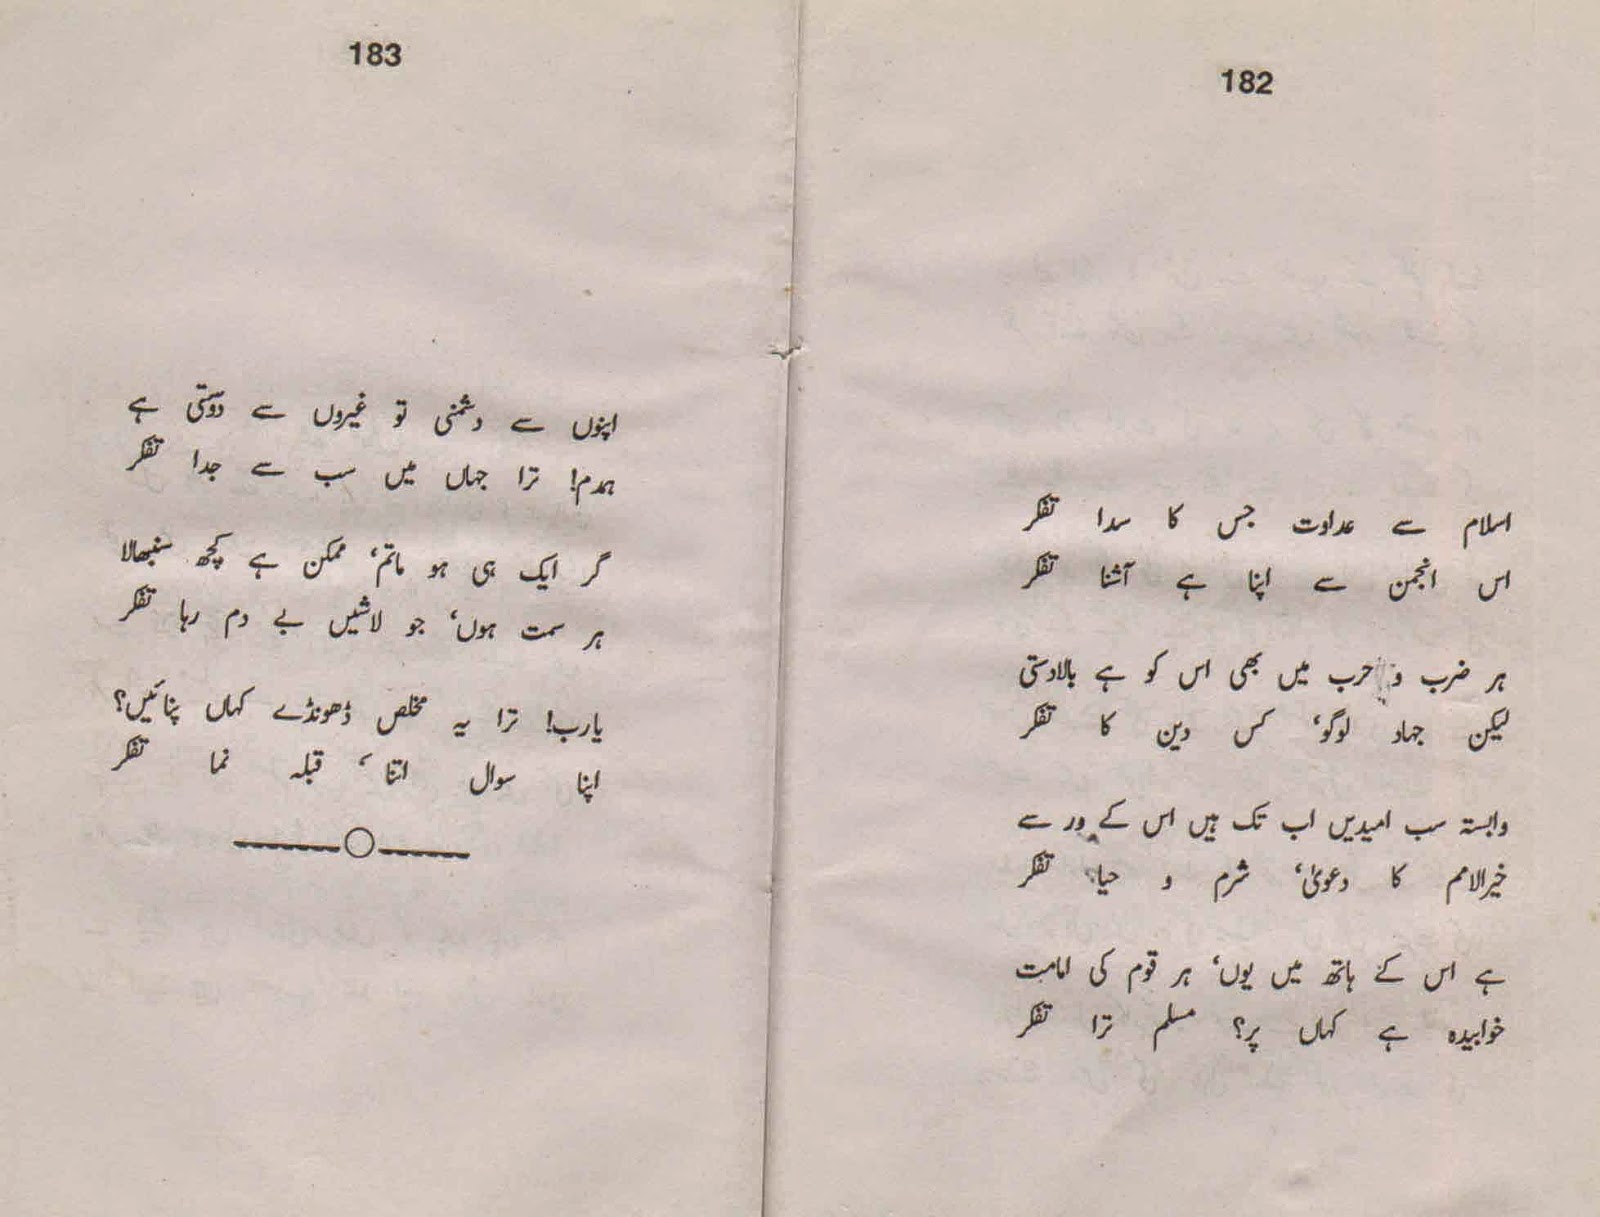 182
اسلام سے عداوت جس کا سدا تفکر
اس انجمن سے اپنا ہے آشنا تفکر
ہر ضرب و حرب میں بھی اس کو ہے بالادستی
لیکن جہاد لوگو، کس دین کا تفکر
وابستہ سب امیدیں اب تک ہیں اس کے در سے
خیرالامم کا دعویٰ، شرم و حیا تفکر
ہے اس کے ہاتھ میں یوں، ہر قوم کی امامت
خوابیدہ ہے کہاں پر؟ مسلم ترا تفکر
183
اپنوں سے دشمنی تو غیروں سے دوستی ہے
ہمدم! ترا جہاں میں سب سے جدا تفکر
گر ایک ہی ہو ماتم، ممکن ہے کچھ سنبھالا
ہر سمت ہوں، جو لاشیں بے دم رہا تفکر
یارب! ترا یہ مخلص ڈھونڈے کہاں پنائیں؟
اپنا سوال اتنا، قبلہ نما تفکر